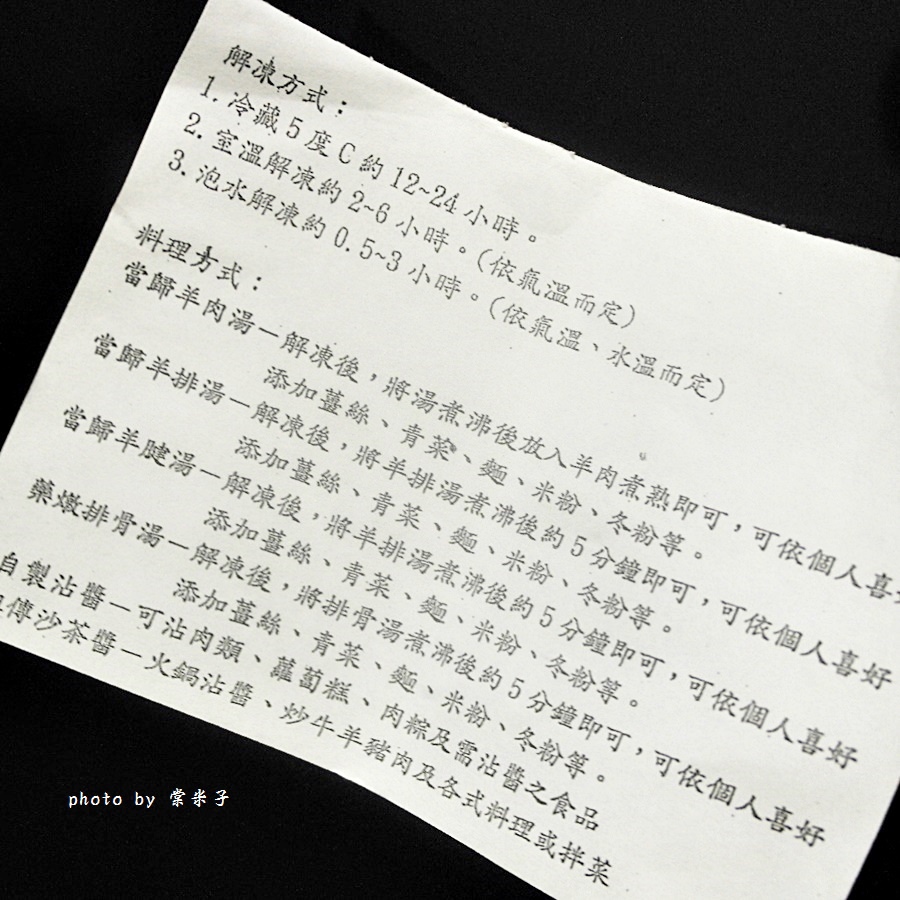 解凍方式：
1. 冷藏 5 度 C 約 12~24 小時。
2. 室溫解凍約 2~6 小時。(依氣溫而定)
3. 泡水解凍約 0.5~3 小時。(依氣溫、水溫而定)
料理方式：
當歸羊肉湯－解凍後，將湯煮沸後放入羊肉煮熟即可，可依個人喜
添加薑絲、青菜、麵、米粉、冬粉等。
當歸羊排湯－解凍後，將羊排湯煮沸後約 5 分鐘即可，可依個人喜好
添加薑絲、青菜、麵、米粉、冬粉等。
當歸羊腱湯－解凍後，將羊排湯煮沸後約 5 分鐘即可，可依個人喜好
添加薑絲、青菜、麵、米粉、冬粉等。
藥燉排骨湯－解凍後，將排骨湯煮沸後約 5 分鐘即可，可依個人喜好
添加薑絲、青菜、麵、米粉、冬粉等。
自製沾醬－可沾肉類、蘿蔔糕、肉粽及需沾醬之食品
傳沙茶醬－火鍋沾醬、炒牛羊豬肉及各式料理或拌菜
photo by 棠米子